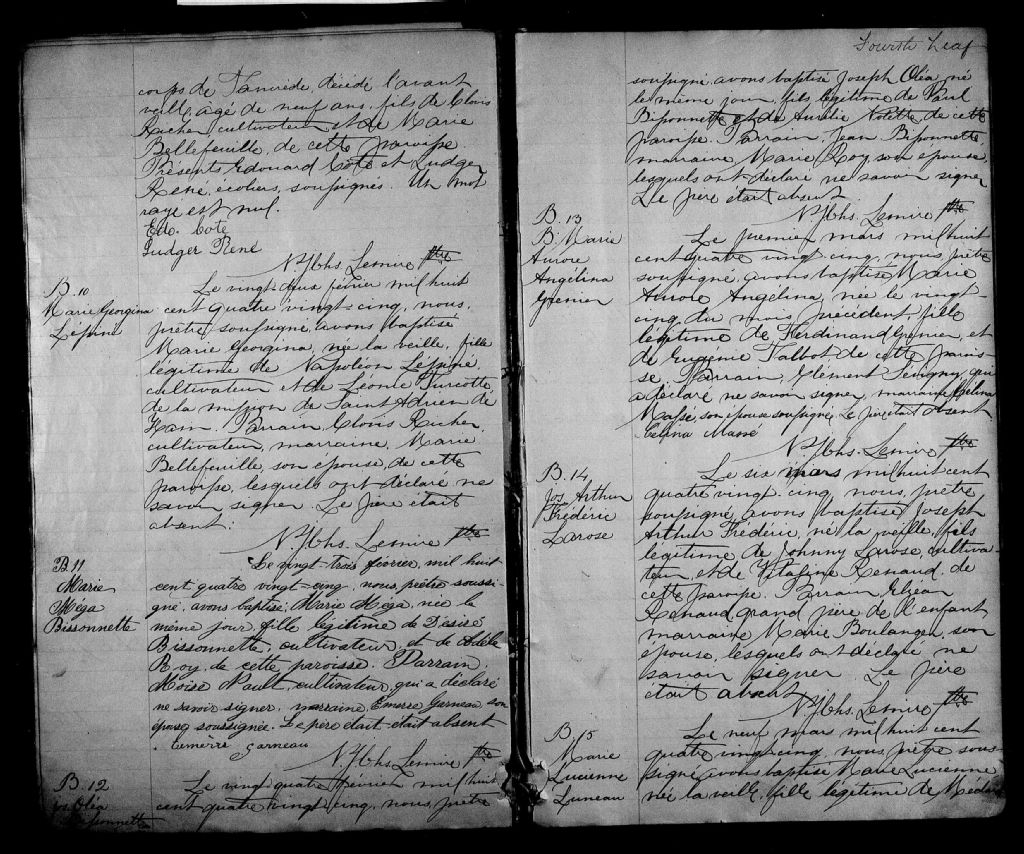 corps de Tancrède, décédé l'avant
veille, agé de neuf ans, fils de Clovis
Rucher, cultivateur et de Marie
Bellefeuille, de cette paroisse.
Présents Edouard Coté et Ludger
René, écoliers, soussignés. Un mot
rayé est nul.
Ed. Cote
Ludger René
N. Jbhs. Lemire Ptre
B. 10
Marie Georgina
Le vingt-deux février mil huit
cent quatre vingt-cinq, nous,
prêtre soussigné, avons baptisé
Marie Georgina, née la veille, fille
légitime de Napoléon
cultivateur et de Léonie Turcotte
de la mission de Saint Adrien de
Ham. Parrain, Clovis Rucher,
cultivateur, marraine, Marie
Bellefeuille, son épouse, de cette
paroisse, lesquels ont déclaré ne
savoir signer. Le père était
absent.
N. Jbhs. Lemire Ptre
B. 11
Marie
Méga
Bissonnette
Le vingt-trois février, mil huit
cent quatre vingt-cinq, nous prêtre soussi-
gné, avons baptisé, Marie Méga, née le
même jour, fille légitime de Désiré
Bissonnette, cultivateur et de Adèle
Roy, de cette paroisse. Parrain,
Moïse Nault, cultivateur, qui a déclaré
ne savoir signer, marraine, Emerse Garneau, son
épouse soussignée. Le père était était absent
Emerre Garneau
N. Jbhs. Lemire Ptre
B. 12
Jos Oléa
Bissonnette
Le vingt quatre février mil huit
cent quatre vingt cinq, nous, prêtre
Fourth Leaf
soussigné, avons baptisé Joseph Oléa, né
le même jour, fils légitime de Paul
Bissonnette et de Aurélie Nolette de cette
paroisse. Parrain, Jean Bissonnette,
marraine, Marie Roy, son épouse,
lesquels ont déclaré ne savoir signer
Le père était absent.
N. Jbhs. Lemire Ptre
B. 13
B. Marie
Aurore
Angélina
Grenier
Le premier mars mil huit
cent quatre vingt cinq, nous, prêtre
soussigné, avons baptisé Marie
Aurore Angélina, née le vingt-
cinq du mois précédent, fille
légitime de Ferdinand Grenier et
de Eugénie Talbot, de cette parois-
se. Parrain, Clément Sevigny, qui
a déclaré ne savoir signer, marraine Célina
Massé, son épouse soussignée. Le père était absent
Celina Massé
N. Jbhs. Lemire Ptre
B. 14
Jos. Arthur
Frédéric
Larose
Le six mars mil huit cent
quatre vingt-cinq, nous, prêtre
soussigné, avons baptisé Joseph
Arthur Frédéric, né la veille, fils
légitime de Johnny Larose, cultiva-
teur, et de Vitaline Renaud, de
cette paroisse. Parrain,
Renaud, grand père de l'enfant
marraine Marie Boulanger, son
épouse, lesquels ont déclaré ne
savoir signer. Le père
était absent
N. Jbhs. Lemire Ptre
B. 15
Marie
Lucienne
Luneau
Le neuf mars mil huit cent
quatre vingt-cinq, nous, prêtre sous-
signé, avons baptisé Marie Lucienne
née la veille, fille légitime de